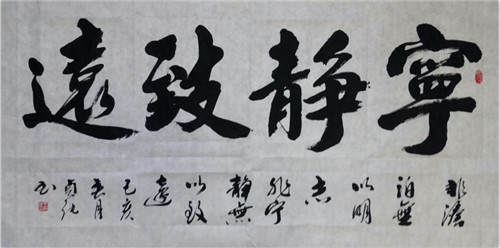 寧靜致遠
非澹
泊無
以明
志
非宁
靜無
以致
遠
己亥
月
书